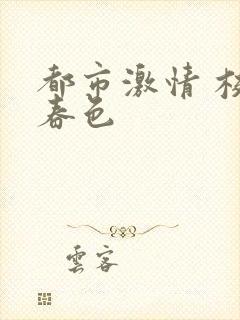 都市激情 校
春色
雲客